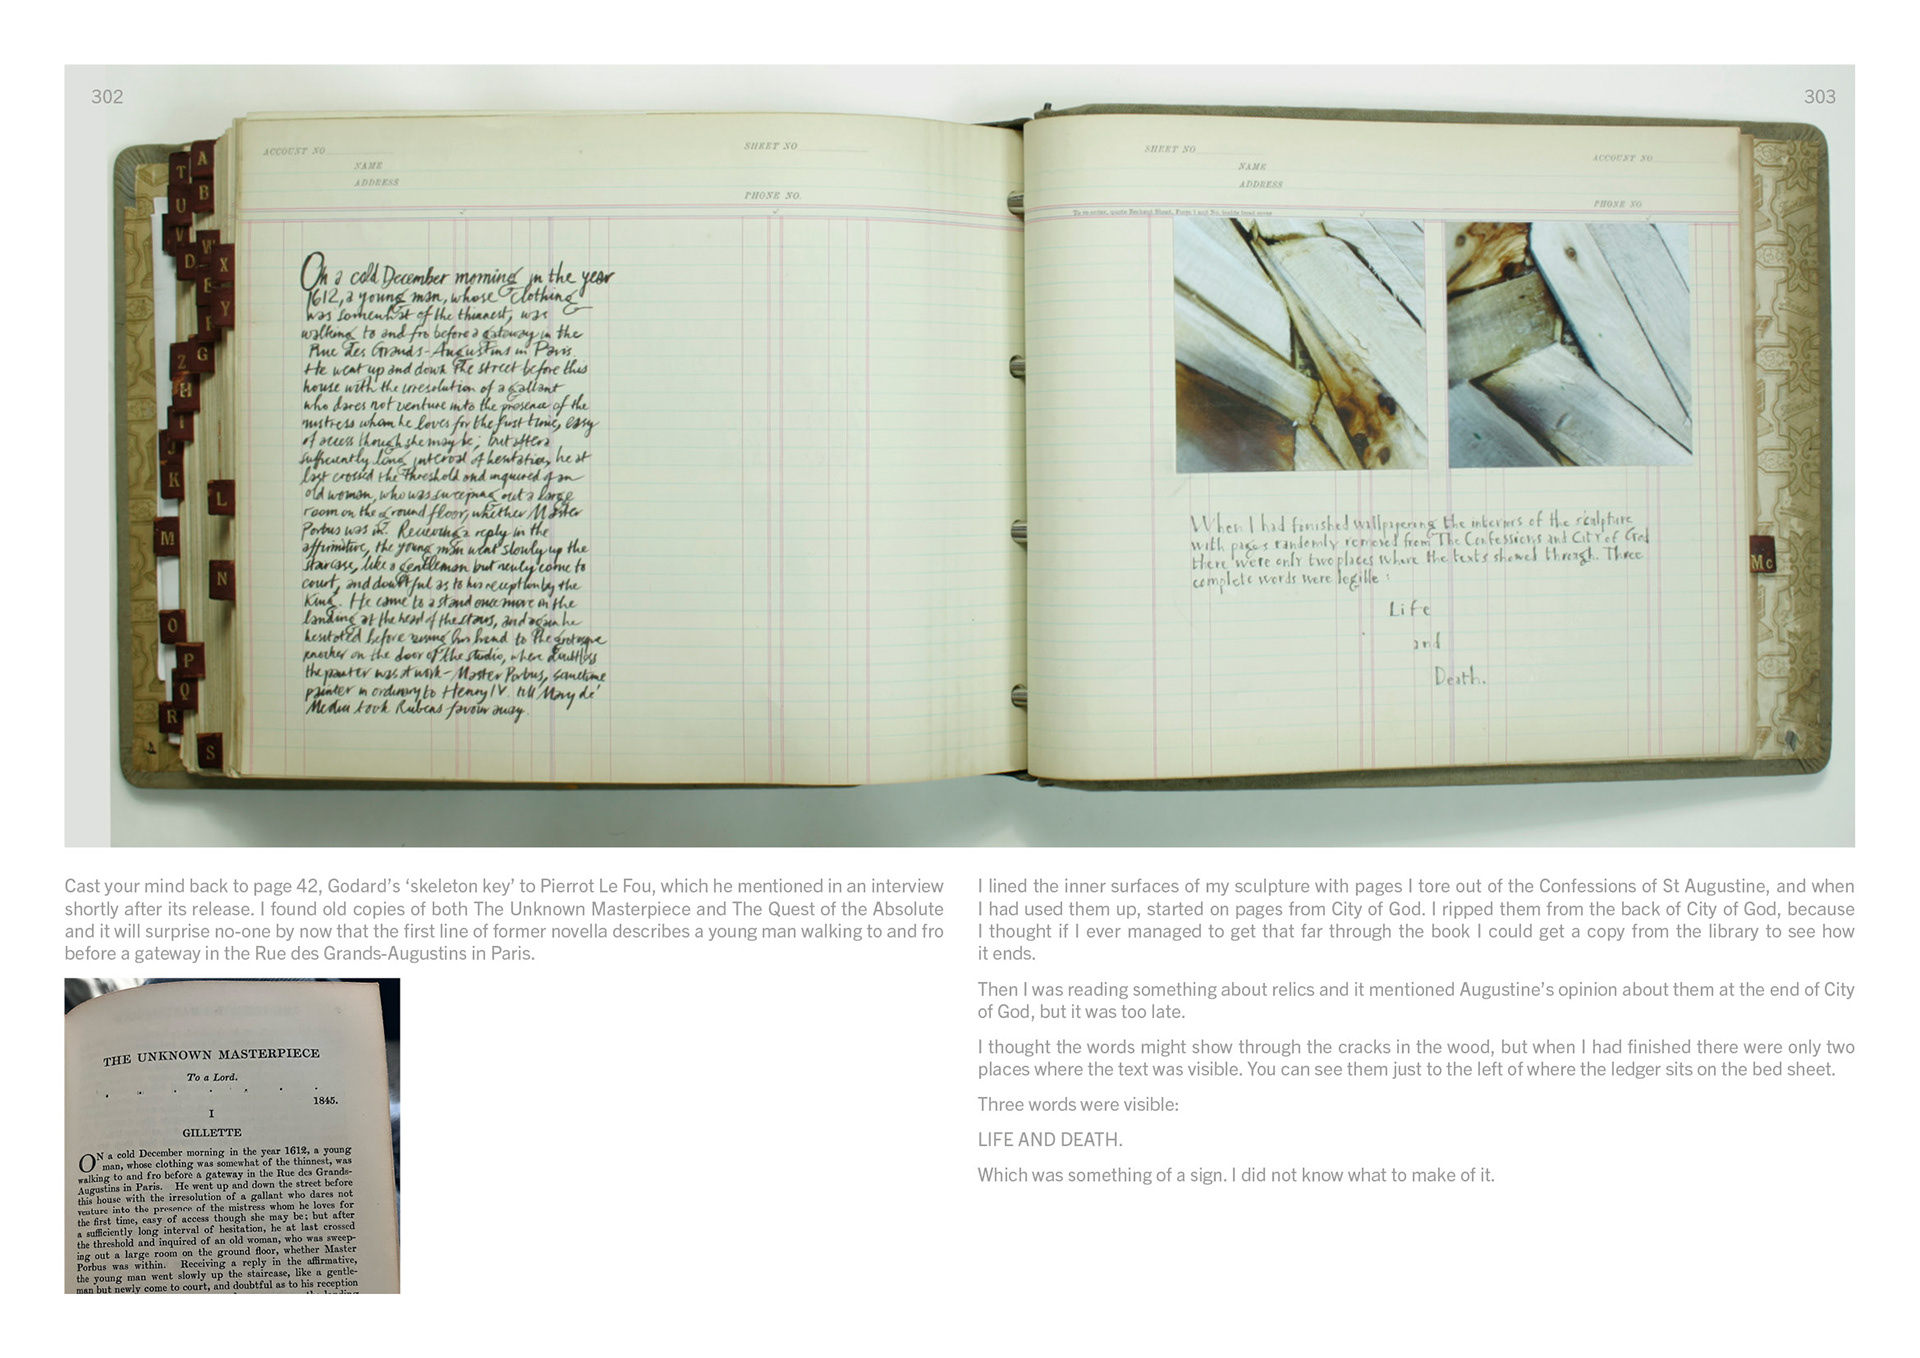 302
303
ACCOUNT NO
SHEET NO
NAME
ADDRESS
PHONE NO.
A
T
B
U
V
W
D
X
E
Y
F
G
Z
H
I
J
K
L
M
N
O
P
Q
R
S
On a cold December morning in the year
1612, a young man, whose clothing
was somewhat of the thinnest, was
walking to and fro before a gateway in the
Rue des Grands-Augustins in Paris
He went up and down the street before this
house with the irresolution of a gallant
who dares not venture into the presence of the
mistress whom he loves for the first time, easy
of access though she may be; but after a
sufficiently long interval of hesitation, he at
last crossed the threshold and inquired of an
old woman, who was sweeping out a large
room on the ground floor, whether Master
Porbus was in. Receiving a reply in the
affirmitive, the young man went slowly up the
staircase, like a gentleman but newly come to
court, and doubtful as to his reception by the
King. He came to a stand once more on the
landing at the head of the stairs, and again he
hesitated before raising his hand to the grotesque
knocker on the door of the studio, where doubtless
the painter was at work - Master Porbus, sometime
painter in ordinary to Henry IV. till Mary de'
Medici took Rubens favour away.
SHEET NO
ACCOUNT NO
NAME
ADDRESS
PHONE NO
When I had finished wallpapering the interiors of the sculpture
with pages randomly removed from The Confessions and City of God
there were only two places where the texts showed through. Three
complete words were legible :
Life
and
Death.
Mc
Cast your mind back to page 42, Godard’s ‘skeleton key’ to Pierrot Le Fou, which he mentioned in an interview
shortly after its release. I found old copies of both The Unknown Masterpiece and The Quest of the Absolute
and it will surprise no-one by now that the first line of former novella describes a young man walking to and fro
before a gateway in the Rue des Grands-Augustins in Paris.
THE UNKNOWN MASTERPIECE
To a Lord.
1845.
I
GILLETTE
ON a cold December morning in the year 1612, a young
man, whose clothing was somewhat of the thinnest, was
walking to and fro before a gateway in the Rue des Grands-
Augustins in Paris. He went up and down the street before
this house with the irresolution of a gallant who dares not
venture into the presence of the mistress whom he loves for
the first time, easy of access though she may be; but after
a sufficiently long interval of hesitation, he at last crossed
the threshold and inquired of an old woman, who was sweep-
ing out a large room on the ground floor, whether Master
Porbus was within. Receiving a reply in the affirmative,
the young man went slowly up the staircase, like a gentle-
man but newly come to court, and doubtful as to his reception
I lined the inner surfaces of my sculpture with pages I tore out of the Confessions of St Augustine, and when
I had used them up, started on pages from City of God. I ripped them from the back of City of God, because
I thought if I ever managed to get that far through the book I could get a copy from the library to see how
it ends.
Then I was reading something about relics and it mentioned Augustine’s opinion about them at the end of City
of God, but it was too late.
I thought the words might show through the cracks in the wood, but when I had finished there were only two
places where the text was visible. You can see them just to the left of where the ledger sits on the bed sheet.
Three words were visible:
LIFE AND DEATH.
Which was something of a sign. I did not know what to make of it.